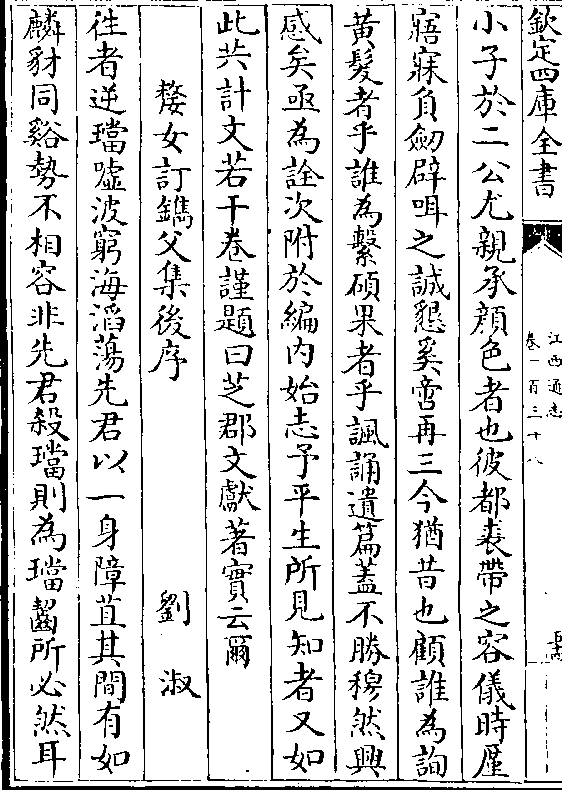 欽定四庫全書
江西通志
卷一百三十八
小子於二公尤親承顔色者也彼都裘帶之容儀時厪
寤寐負劒辟咡之誠懇奚啻再三今猶昔也顧誰為詢
黄髮者乎誰為繫碩果者乎諷誦遺篇蓋不勝穆然興
感矣亟為詮次附於編内始志予平生所見知者又如
此共計文若干卷謹題曰芝郡文獻著實云爾
嫠女訂鐫父集後序
劉淑
徃者逆璫噓波窮海滔蕩先君以一身障苴其間有如
麟豺同谿勢不相容非先君殺璫則為璫齧所必然耳